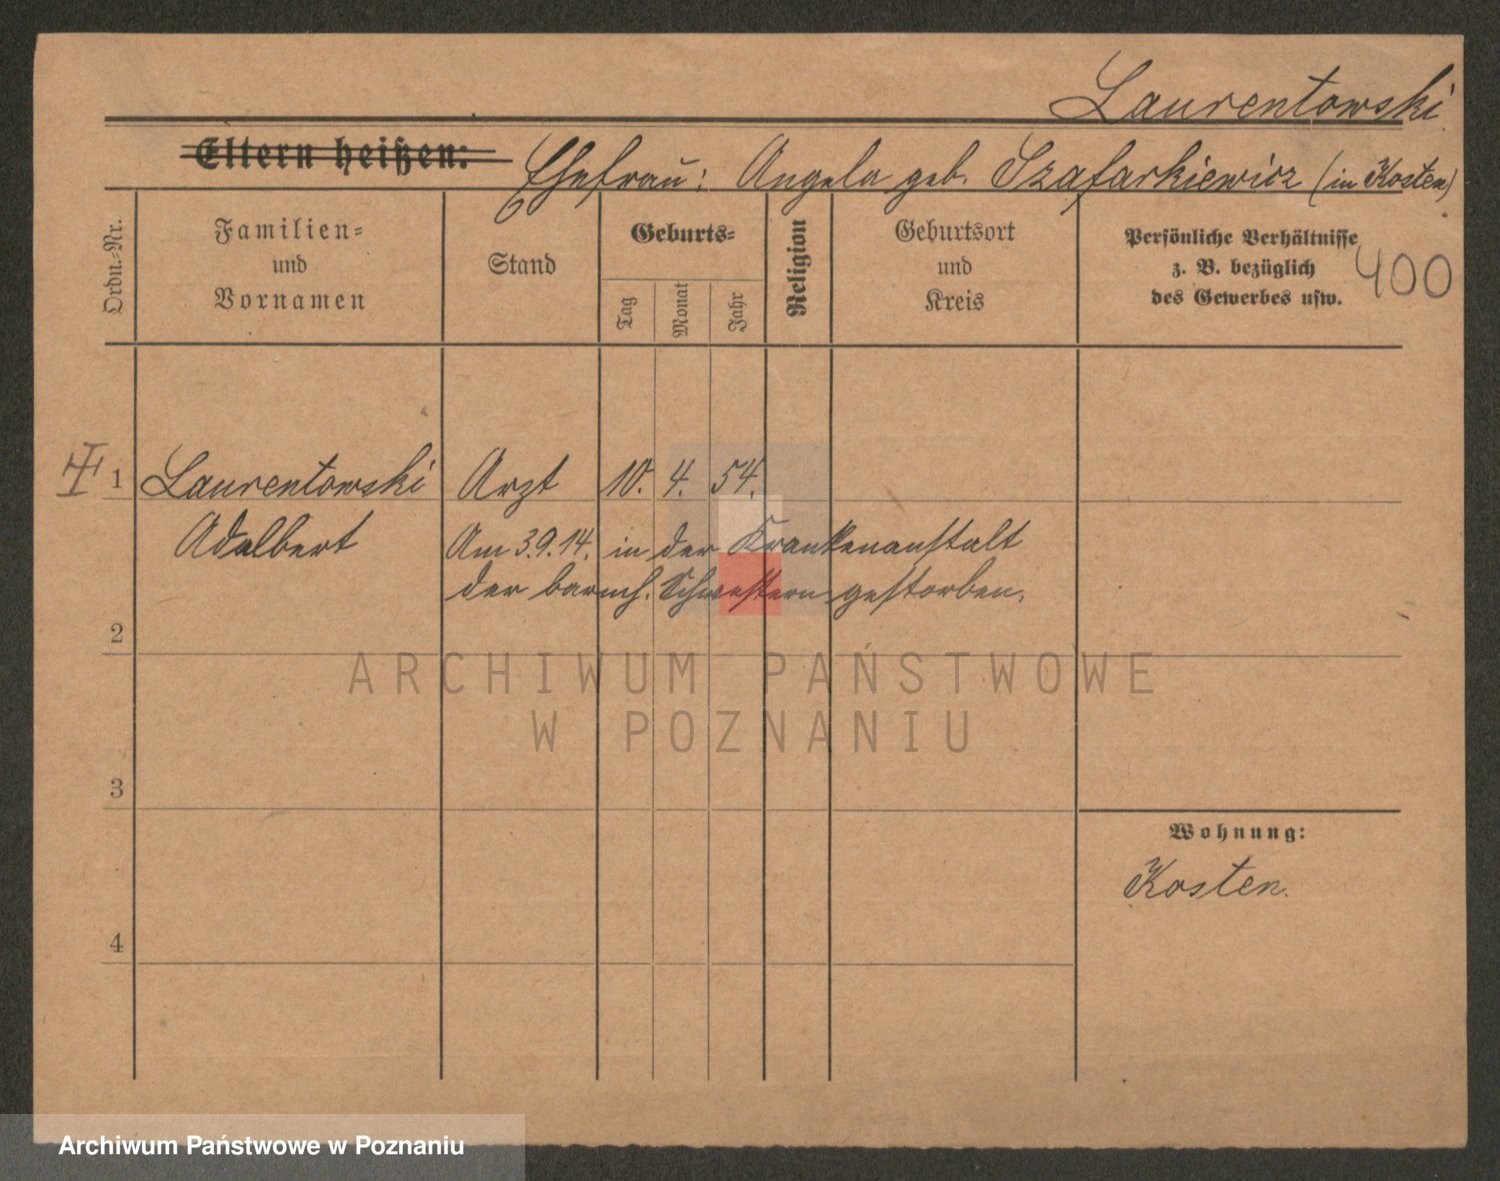 Laurentowski
Eltern heißen: Ehefrau: Angela geb. Szafarkiewicz (in Kosten)
Ordn.-Nr.
Familien-
und
Vornamen
Stand
Geburts-
Tag
Monat
Jahr
Religion
Geburtsort
und
Kreis
Persönliche Verhältnisse
z. B. bezüglich
des Gewerbes usw.
400
1 Laurentowski Arzt 10. 4. 54.
Adalbert Am 3.9.14. in der Krankenanstalt
der barmh. Schwestern gestorben.
2
ARCHIWUM PAŃSTWOWE
W POZNANIU
3
Wohnung:
Kosten.
4
Archiwum Państwowe w Poznaniu